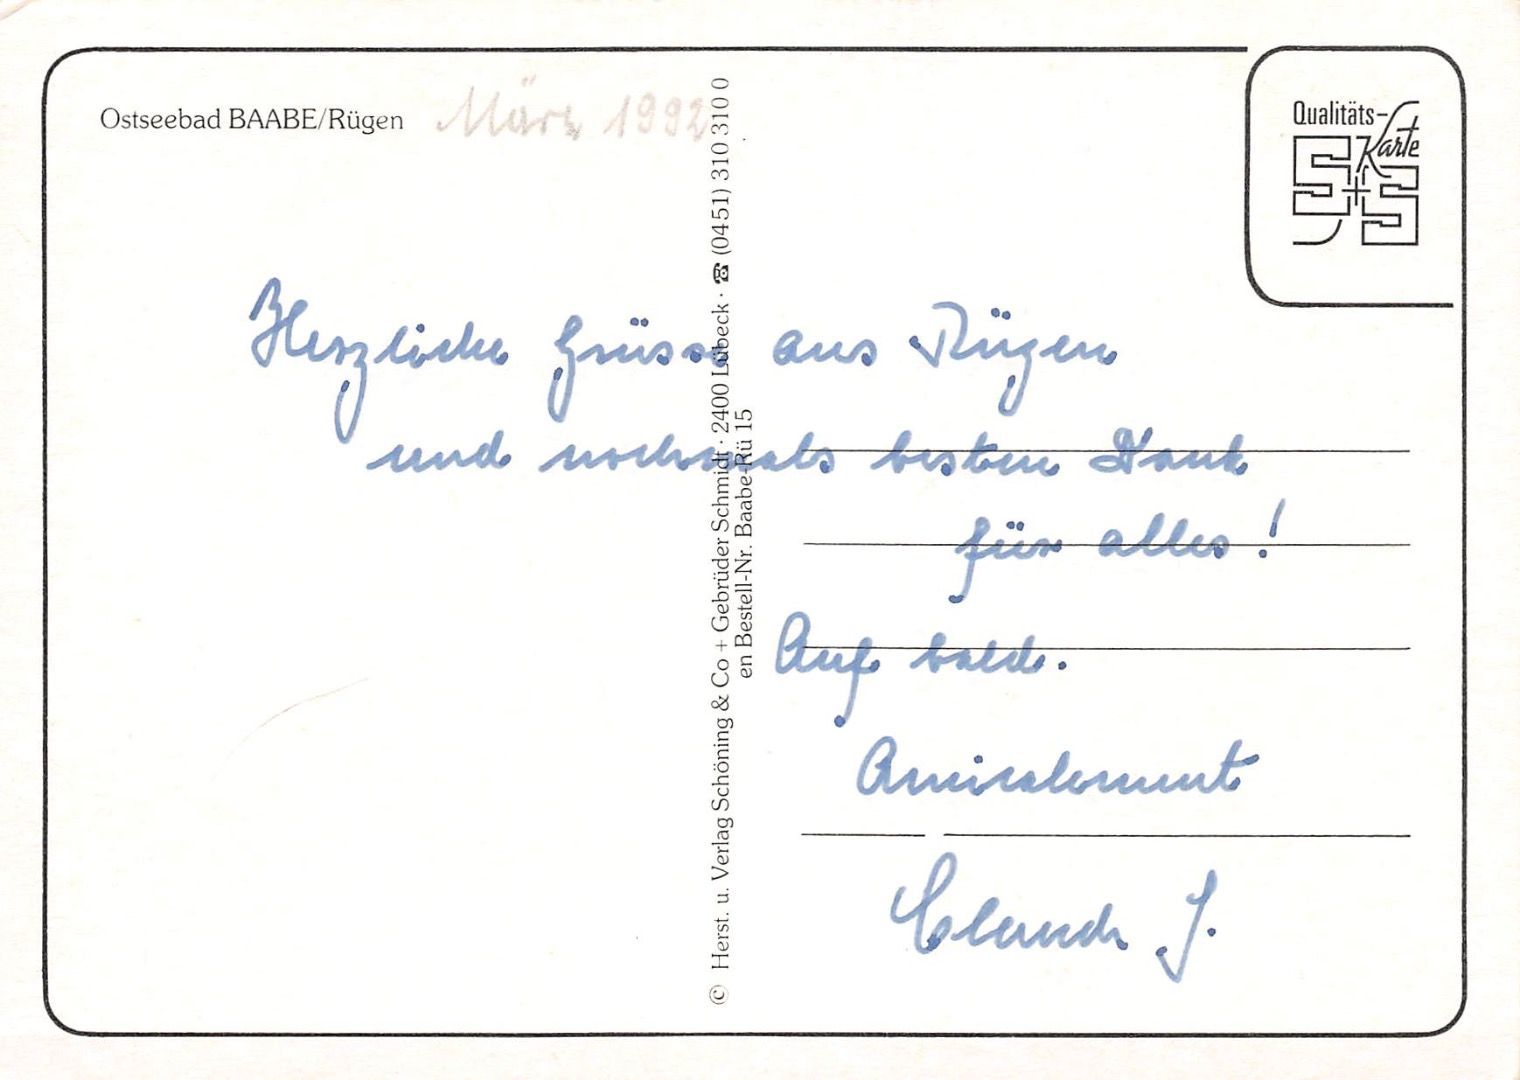 Ostseebad BAABE/Rügen
März 1992
Qualitäts-
Karte
S+S
Herzliche Grüsse aus Rügen
und nochmals besten Dank
für alles!
Auf bald.
Amicalement
Claude J.
© Herst. u. Verlag Schöning & Co + Gebrüder Schmidt · 2400 Lübeck · ☎ (0451) 310 310 0
en Bestell-Nr. Baabe-Rü 15